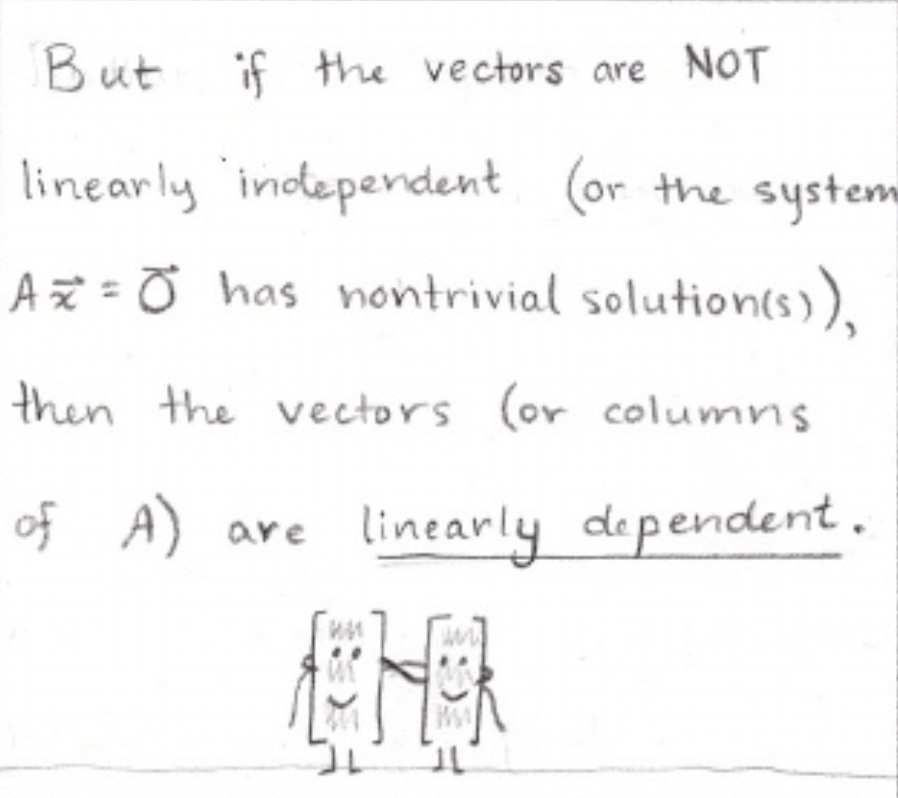 But if the vectors are NOT
linearly independent (or the system
A x⃗ = 0⃗ has nontrivial solution(s)),
then the vectors (or columns
of A) are linearly dependent.